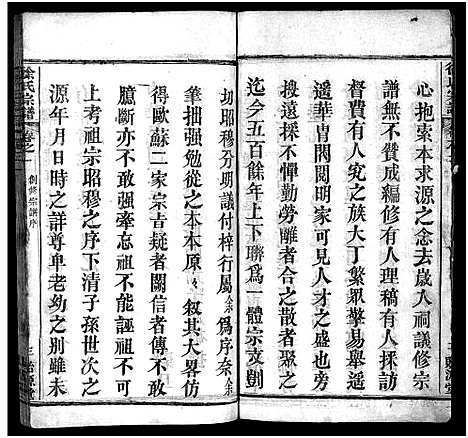 心抱索本求源之念去歲入祠議修宗
譜無不贊成編修有人理稿有人採訪
有人究之族大丁繁眾擎易舉遥
遥華冑閥閱明家可見人才之盛也旁
及不憚勤勞離者合之散者聚之
迄今五百餘年上下聯為一體宗支剴
切昭穆分明議付梓行屬余為序奈余
筆拙强勉從之本本原々叙其大畧仿
得歐蘇二家宗吉疑者闕信者傳不敢
臆斷亦不敢强牽忘祖不可誣祖不可
上考祖宗昭穆之序下清子孫世次之
源年月日時之詳尊卑老幼之別雖未
徐氏宗譜
卷之一
創修宗譜序
三